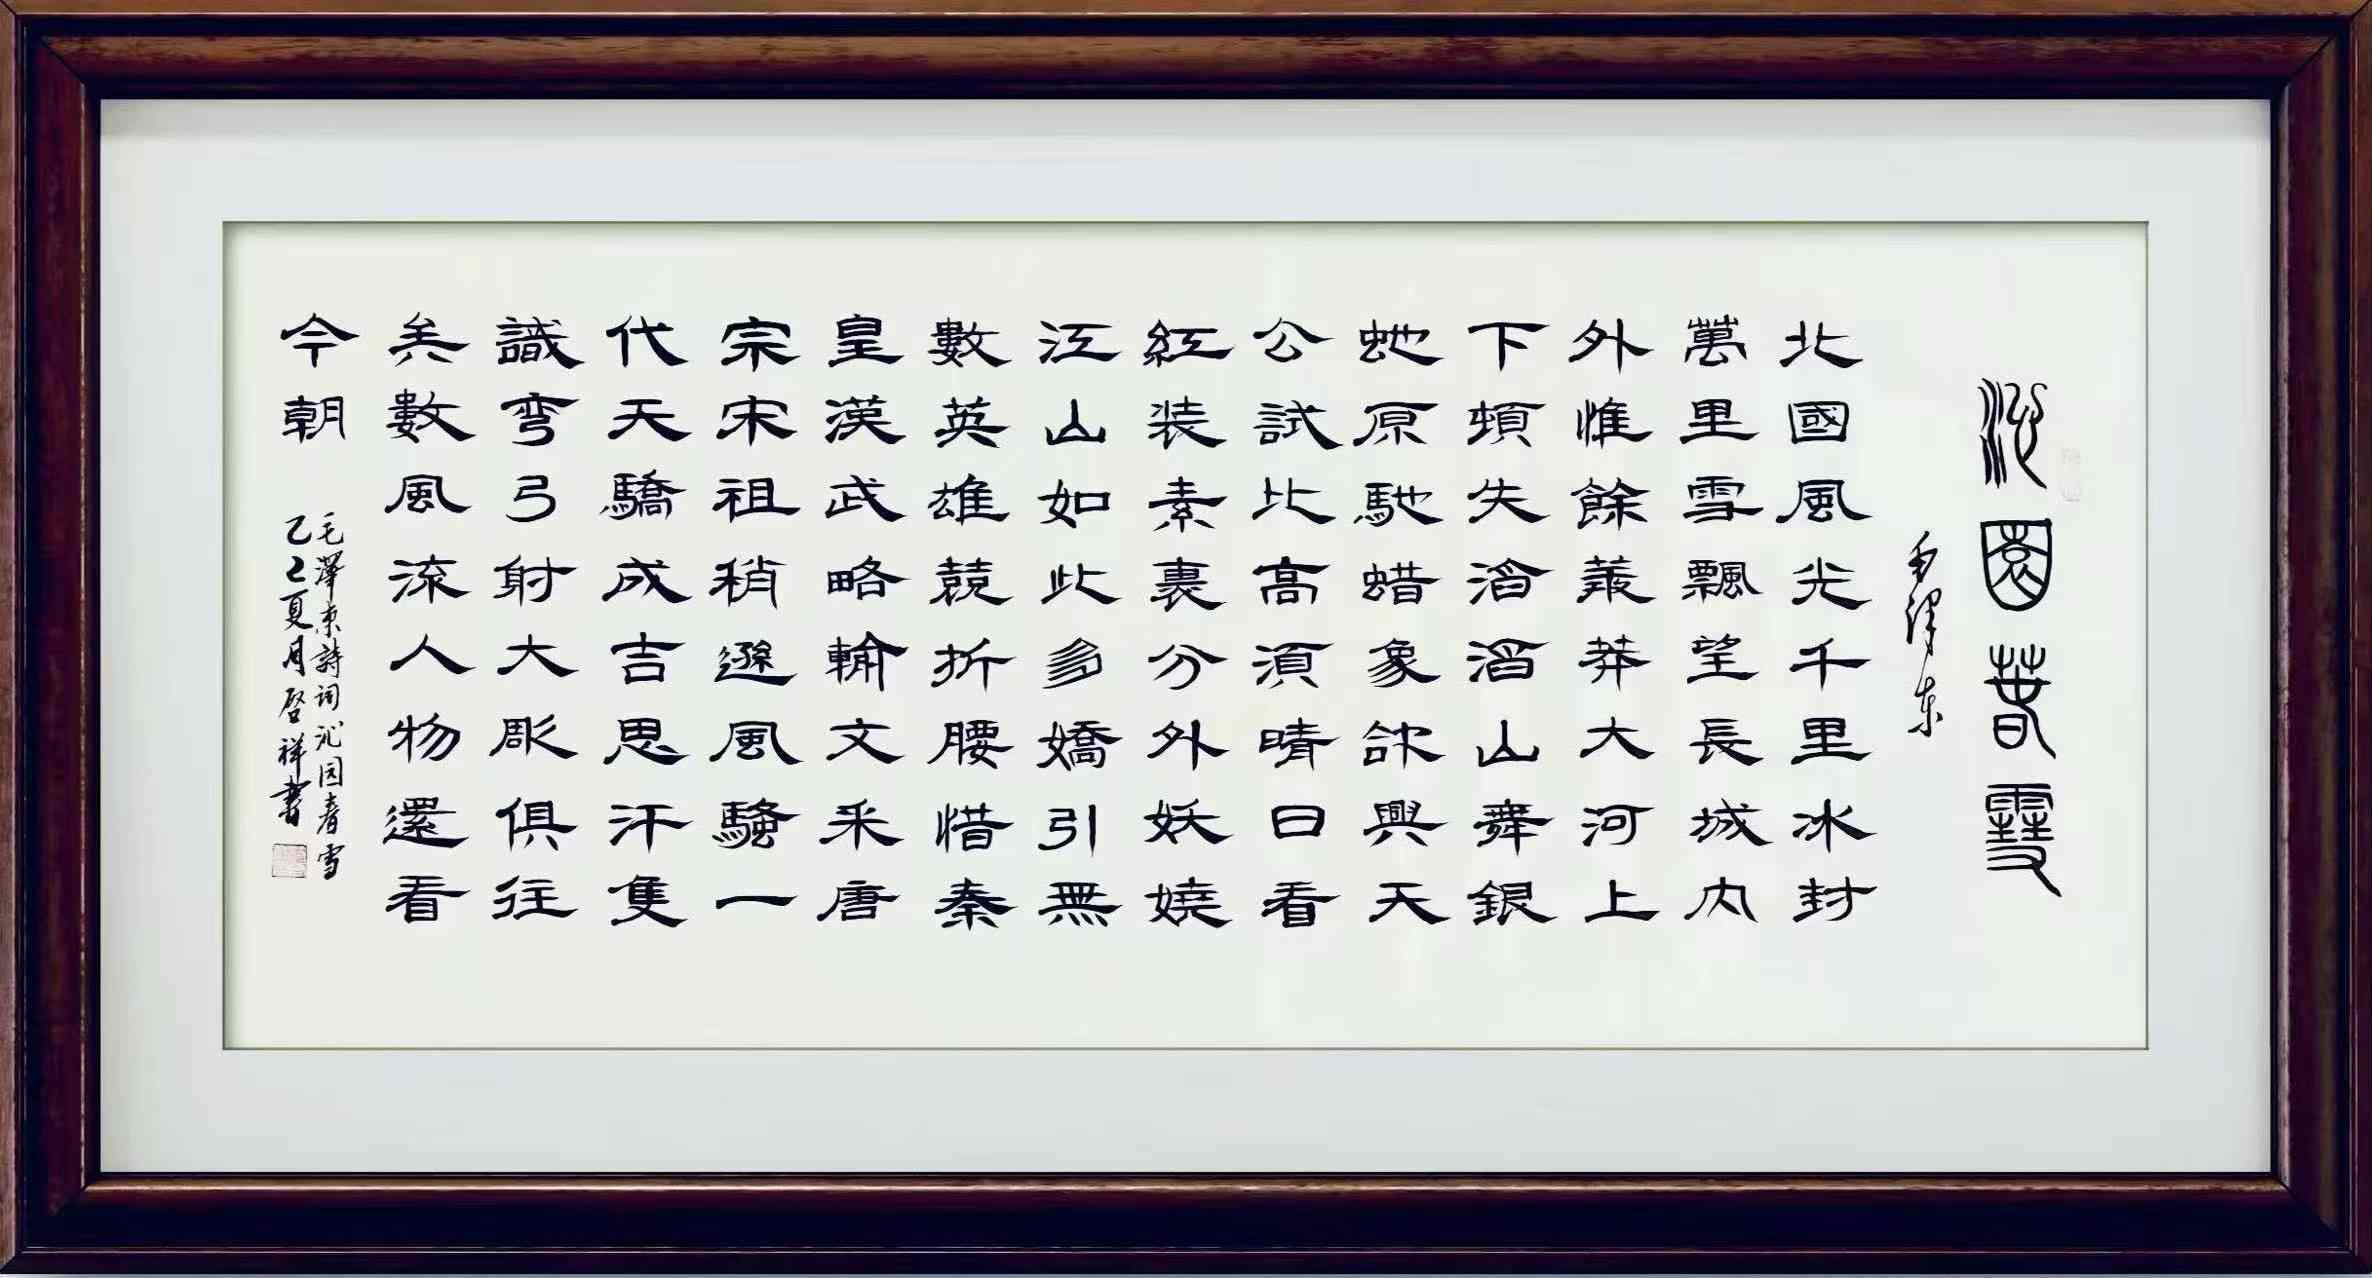 沁園春雪
毛泽东
北國風光千里冰封
萬里雪飄望長城内
外惟餘莽莽大河上
下頓失滔滔山舞銀
虵原馳蜡象欲與天
公試比高須晴日看
紅装素裹分外妖嬈
江山如此多嬌引無
數英雄競折腰惜秦
皇漢武略輸文采唐
宗宋祖稍遜風騷一
代天驕成吉思汗隻
識彎弓射大彫俱往
矣數風流人物還看
今朝
毛澤東詩詞沁园春雪
乙巳夏月啓祥書